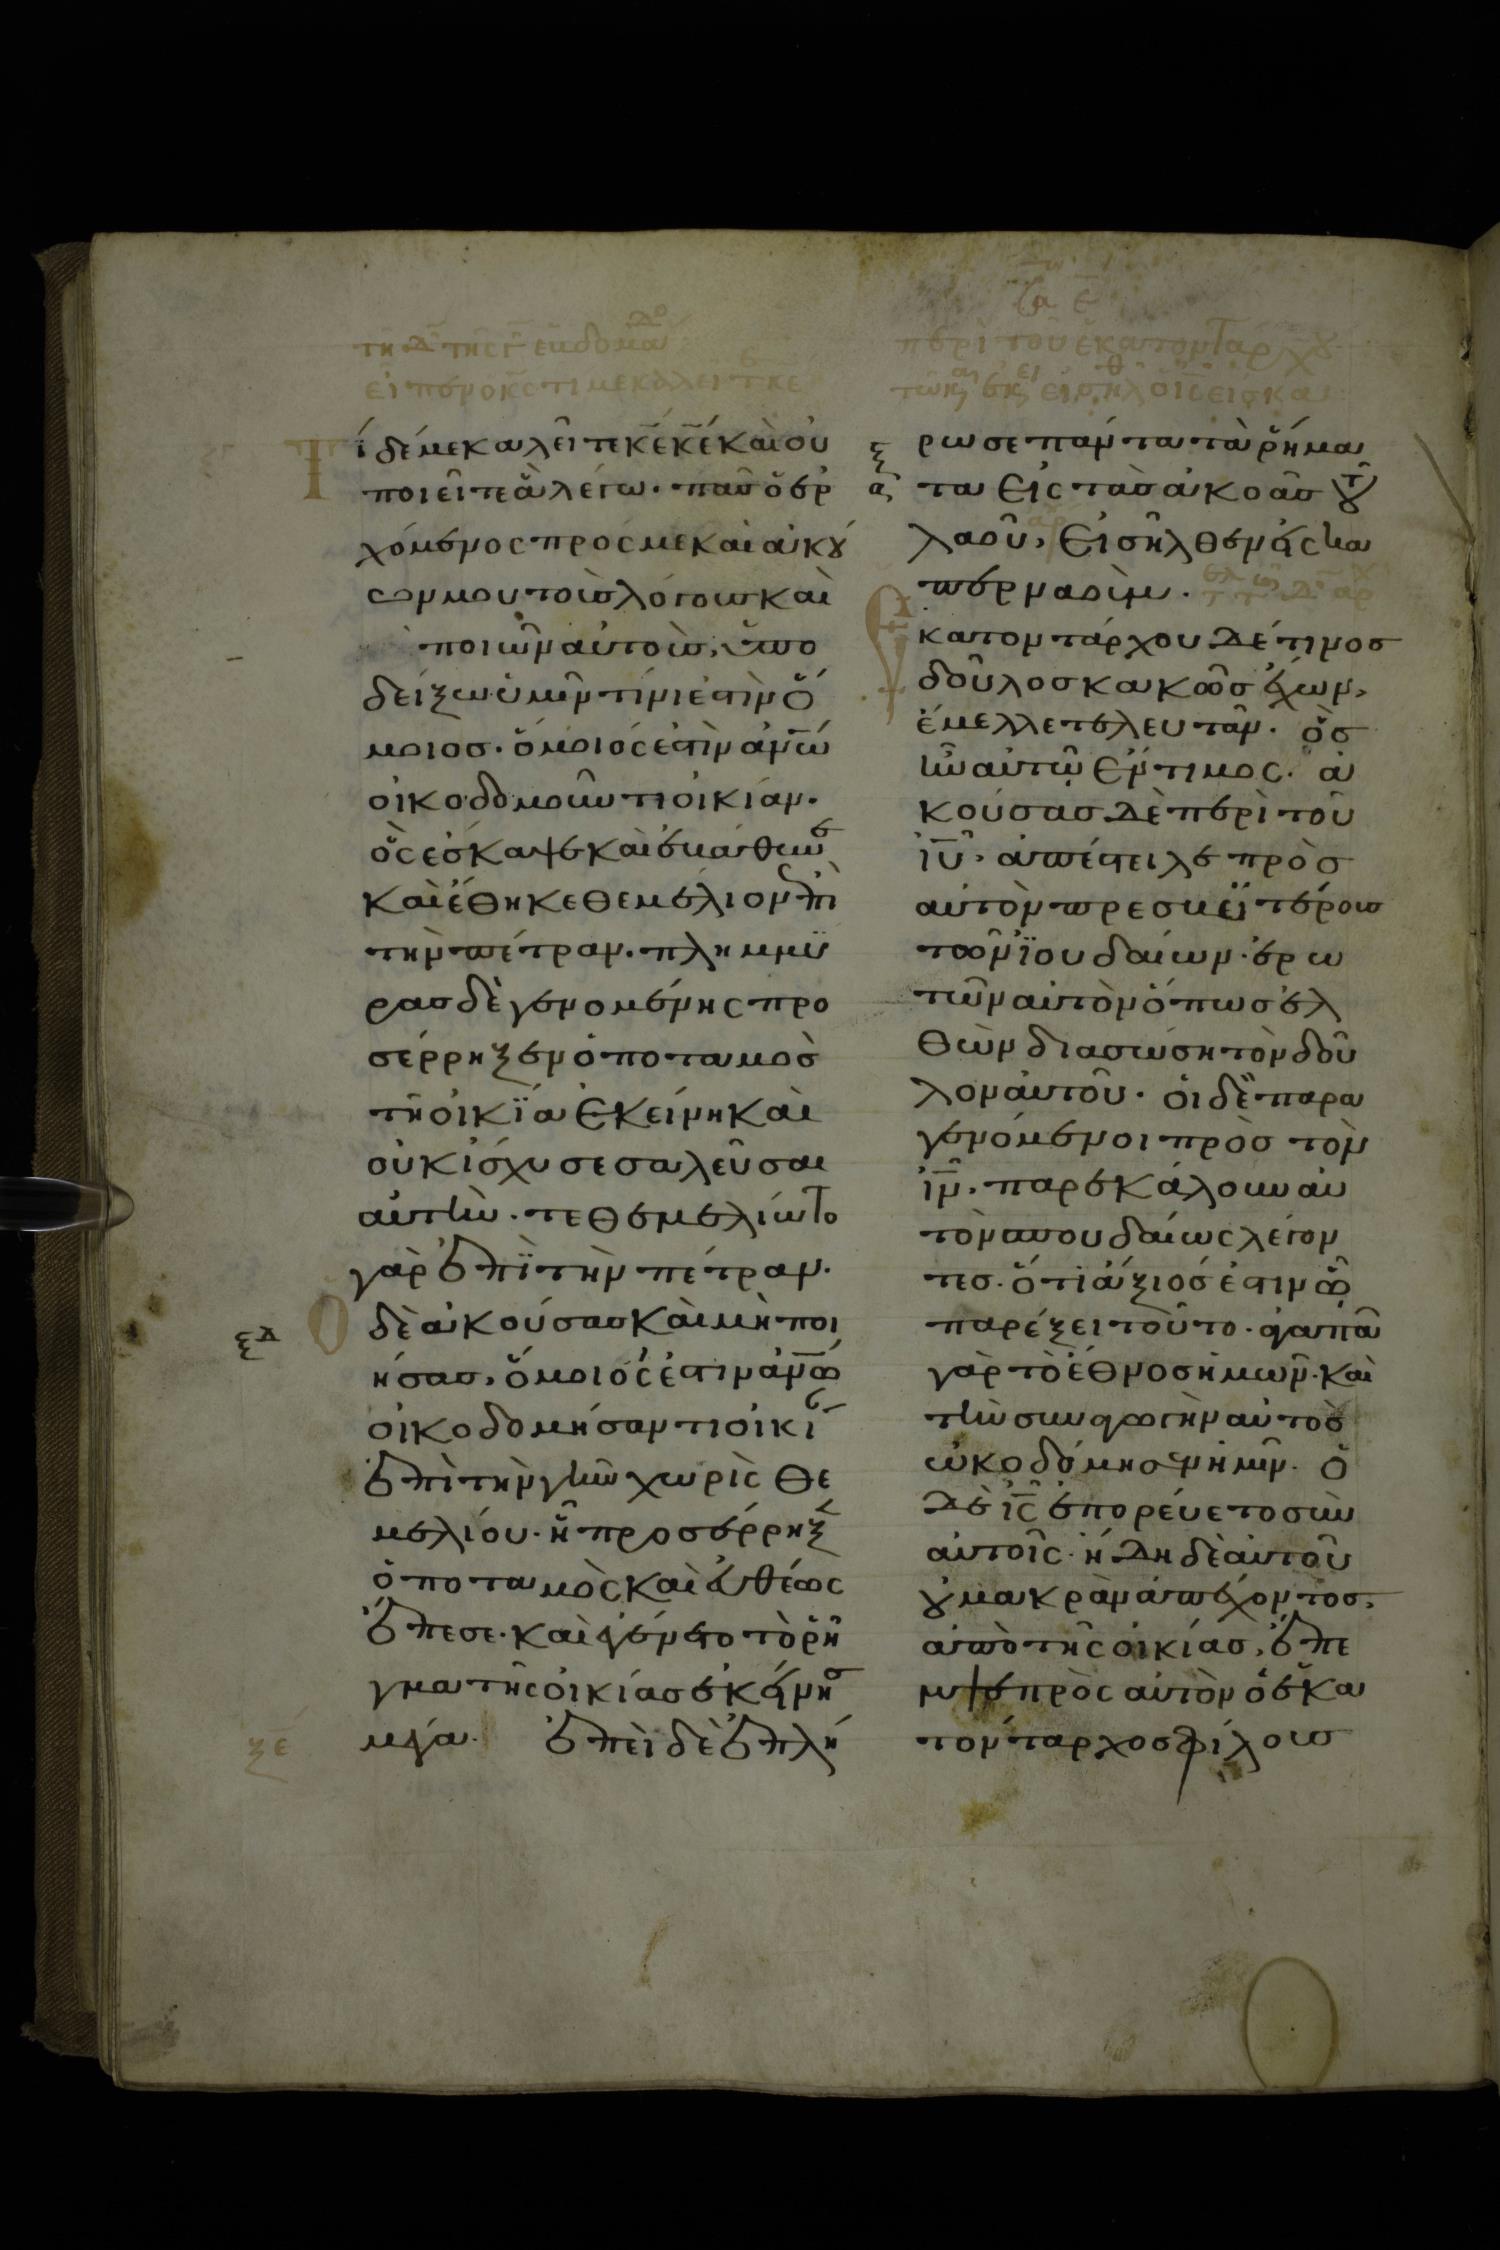 τη δ της γ εβδομαδο
ειπεν ο κς τι με καλειτε κε
Τί δέ με καλεῖτε κε κε καὶ οὐ
ποιεῖτε ἃ λέγω· πᾶσ ὁ ἐρ
χόμενος πρός με καὶ ἀκού
ων μου τοὺσ λόγουσ καὶ
ποιῶν αὐτοὺσ, ὑπο
δείξω ὑμῖν τίνι ἐστὶν ὅ
μοιοσ· ὅμοιός ἐστὶν ἀνῶ
οἰκοδομοῦντι οἰκίαν·
ὃς ἐσκαψε καὶ ἐβάθυνε
καὶ ἔθηκε θεμέλιον ἐπὶ
τὴν πέτραν· πλημμύ
ρασ δὲ γενομένης προ
σέρρηξεν ὁ ποταμὸσ
τῆ οἰκία ἐκείνη καὶ
οὐκ ἰσχυσε σαλεῦσαι
αὐτὴν· τεθεμελίωτο
γὰρ ἐπὶ τὴν πέτραν·
ξδ Ο δὲ ἀκούσασ καὶ μὴ ποι
ήσασ, ὅμοιός ἐστιν ἀνῶ
οἰκοδομήσαντι οἰκί
ἐπὶ τὴν γῆν χωρὶς θε
μελίου· ἧ προσέρρηξ
ὁ ποταμὸς καὶ ἐυθέως
ἔπεσε· καὶ ἐγένετο τὸ ρῆ
γμα τῆς οἰκίασ ἐκείνησ
ξε μέγα· ἐπεὶ δὲ ἐπλή
περὶ τοῦ ἑκατοντάρχου
τω κ εκ εισηλθ ο ις εισ κα
ρωσε πάντα τὰ ρήμα
τα εἰς τὰσ ἀκοὰσ τοῦ
λαοῦ, εἰσῆλθεν εἰς κα
περναούμ·
Εκατοντάρχου δέ τινοσ
δοῦλοσ κακῶσ ἔχων,
ἔμελλε τελευτᾶν· ὃσ
ἦν αὐτῶ ἔντιμος· ἀ
κούσασ δὲ περὶ τοῦ
ιυ· ἀπέστειλε πρὸσ
αὐτὸν πρεσβυτέρουσ
τῶν ἰουδαίων· ἐρω
τῶν αὐτὸν ὅπωσ ἐλ
θὼν διασώση τὸν δοῦ
λον αὐτοῦ· οἱ δὲ παρα
γενόμενοι πρὸσ τὸν
ιν· παρεκάλουν αὐ
τὸν σπουδαίως λέγον
τεσ· ὅτι ἄξιόσ ἐστιν ὧ
παρέξει τοῦτο· ἀγαπᾶ
γὰρ τὸ ἔθνοσ ἡμῶν· καὶ
τὴν συναγωγὴν αὐτὸσ
ὠκοδόμησεν ἡμῖν· ὁ
δὲ ις ἐπορεύετο σὺν
αὐτοῖς· ἤδη δὲ αὐτοῦ
οὐ μακρὰν ἀπέχοντοσ,
ἀπὸ τῆς οἰκίασ, ἔπε
μψε πρὸς αὐτὸν ὁ ἑκα
τόνταρχοσ φίλουσ